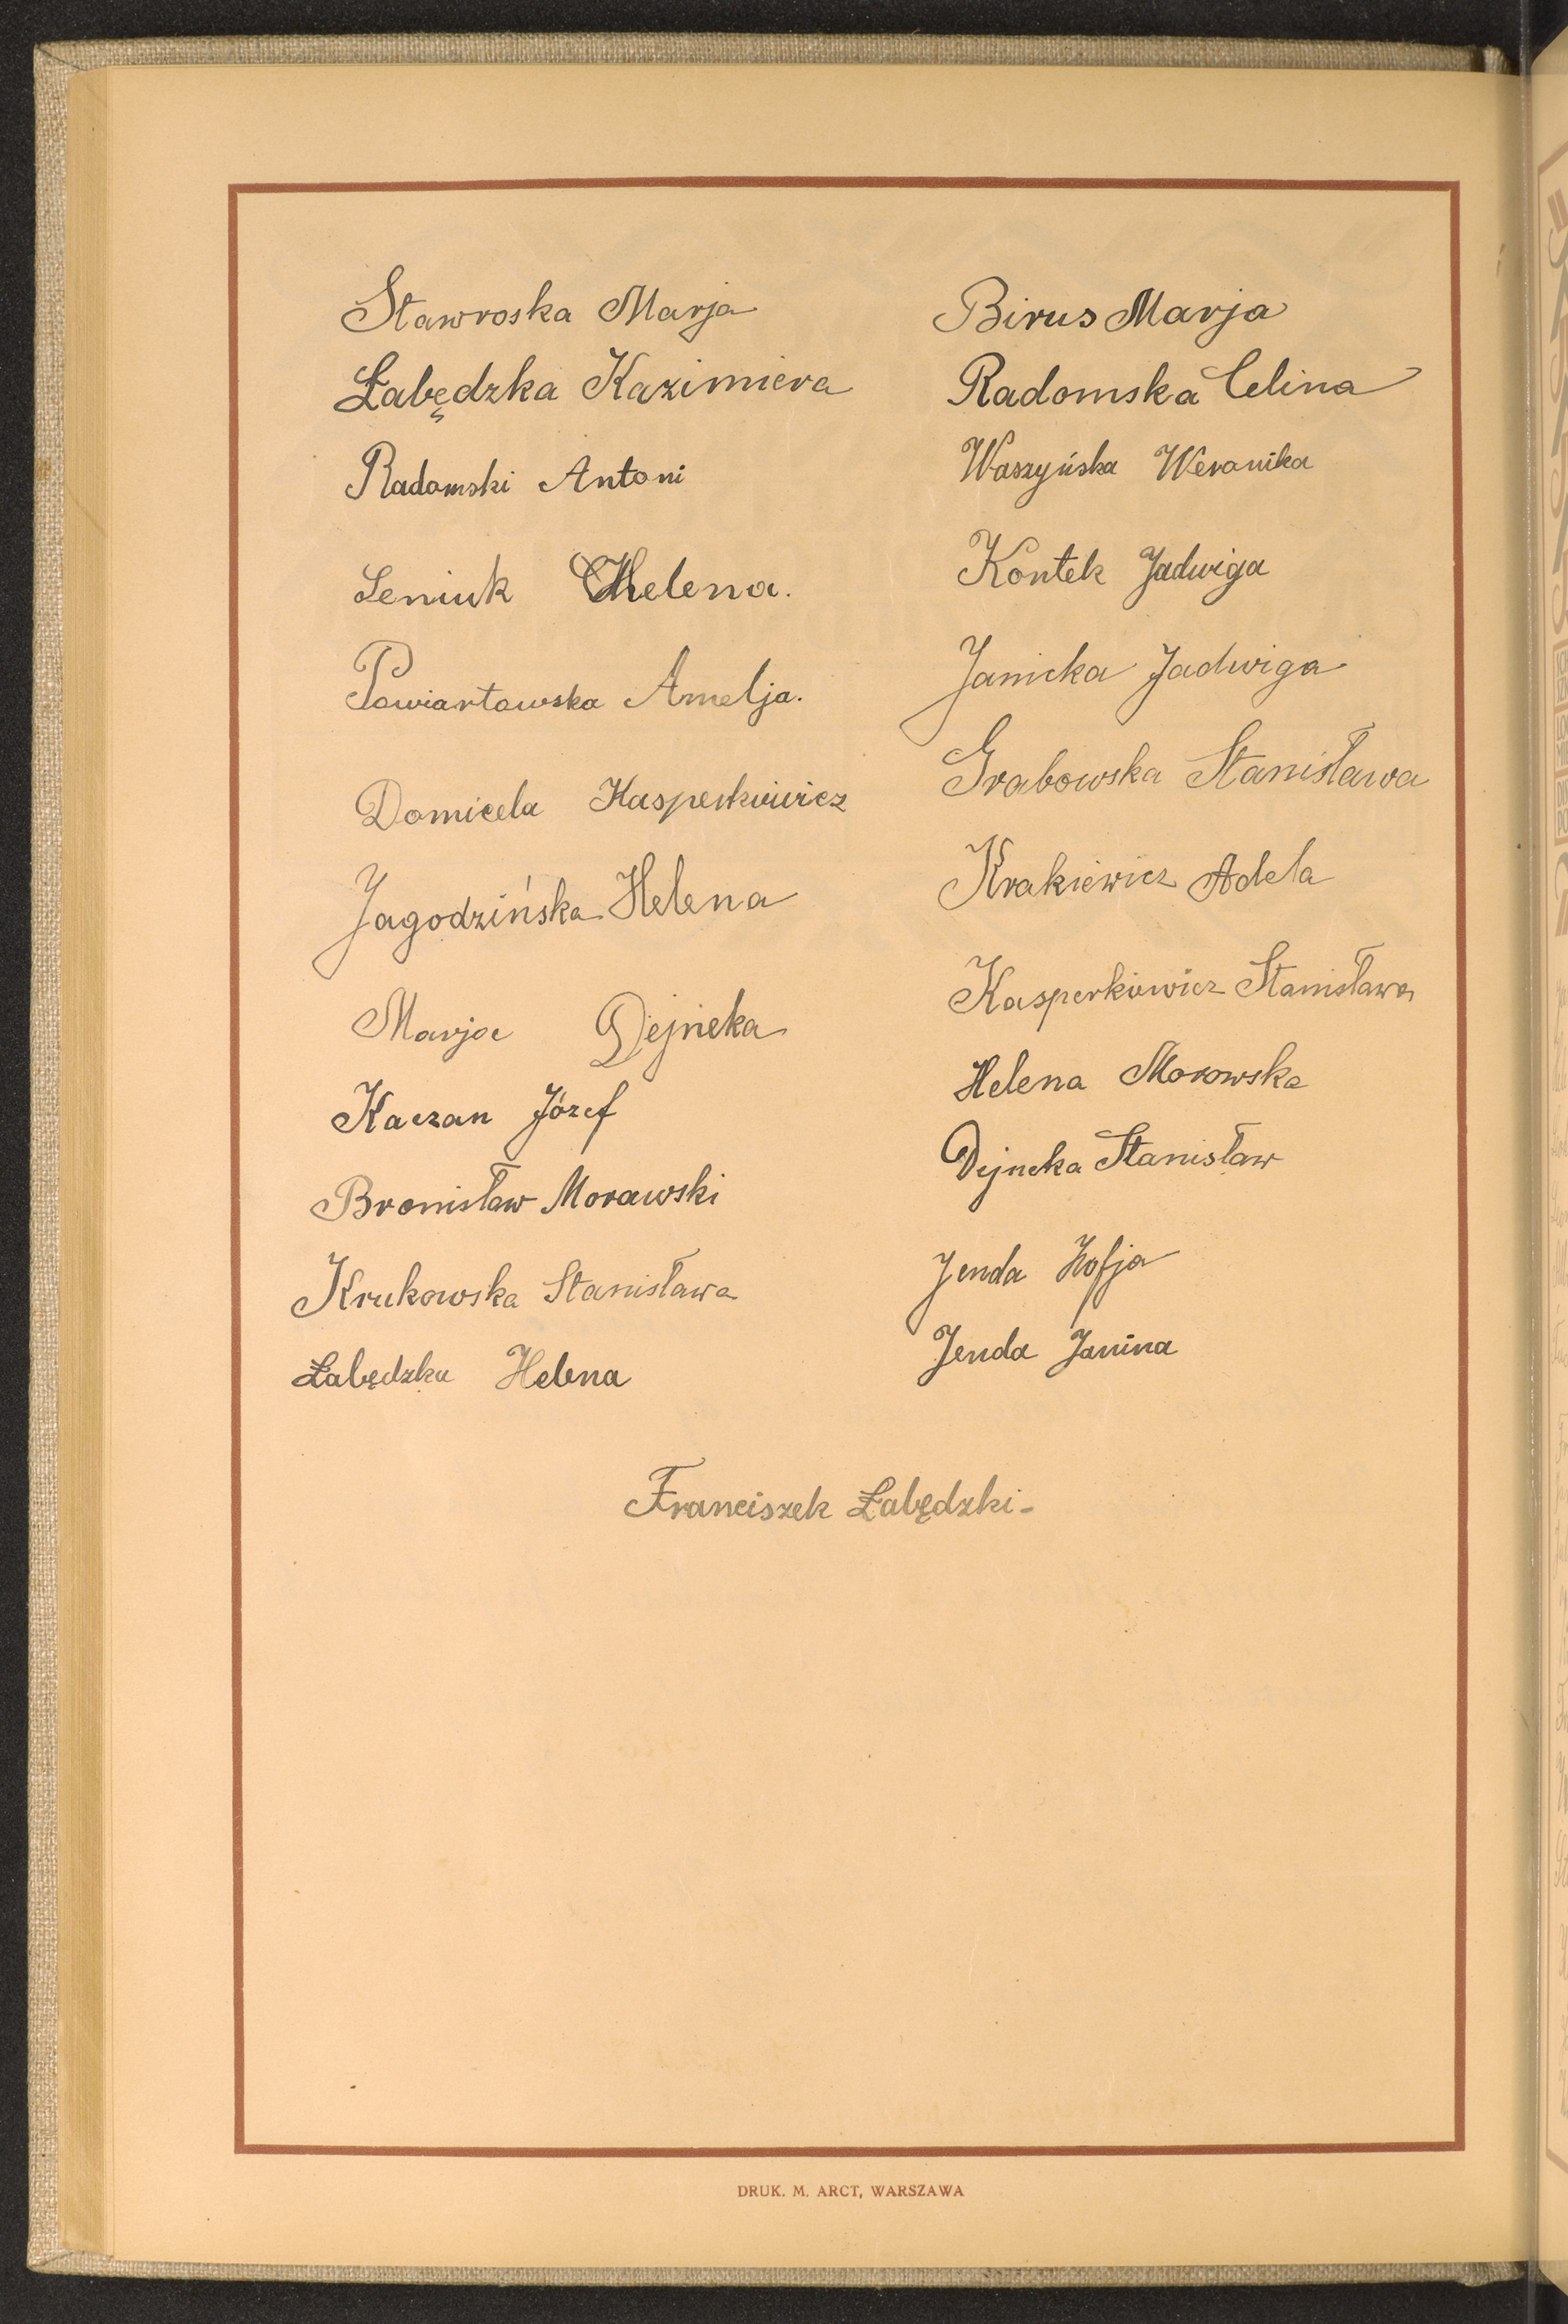 Stawroska Marja
Łabędzka Kazimiera
Radomski Antoni
Leniuk Helena.
Powiartowska Amelja.
Domicela Kasperkiewicz
Jagodzińska Helena
Marja Dejneka
Kaczan Józef
Bronisław Morawski
Krukowska Stanisława
Łabędzka Helena
Birus Marja
Radomska Celina
Waszyńska Weronika
Kontek Jadwiga
Janicka Jadwiga
Grabowska Stanisława
Krakiewicz Adela
Kasperkiewicz Stanisława
Helena Morowska
Dejneka Stanisław
Jenda Zofja
Jenda Janina
Franciszek Łabędzki-
DRUK. M. ARCT, WARSZAWA